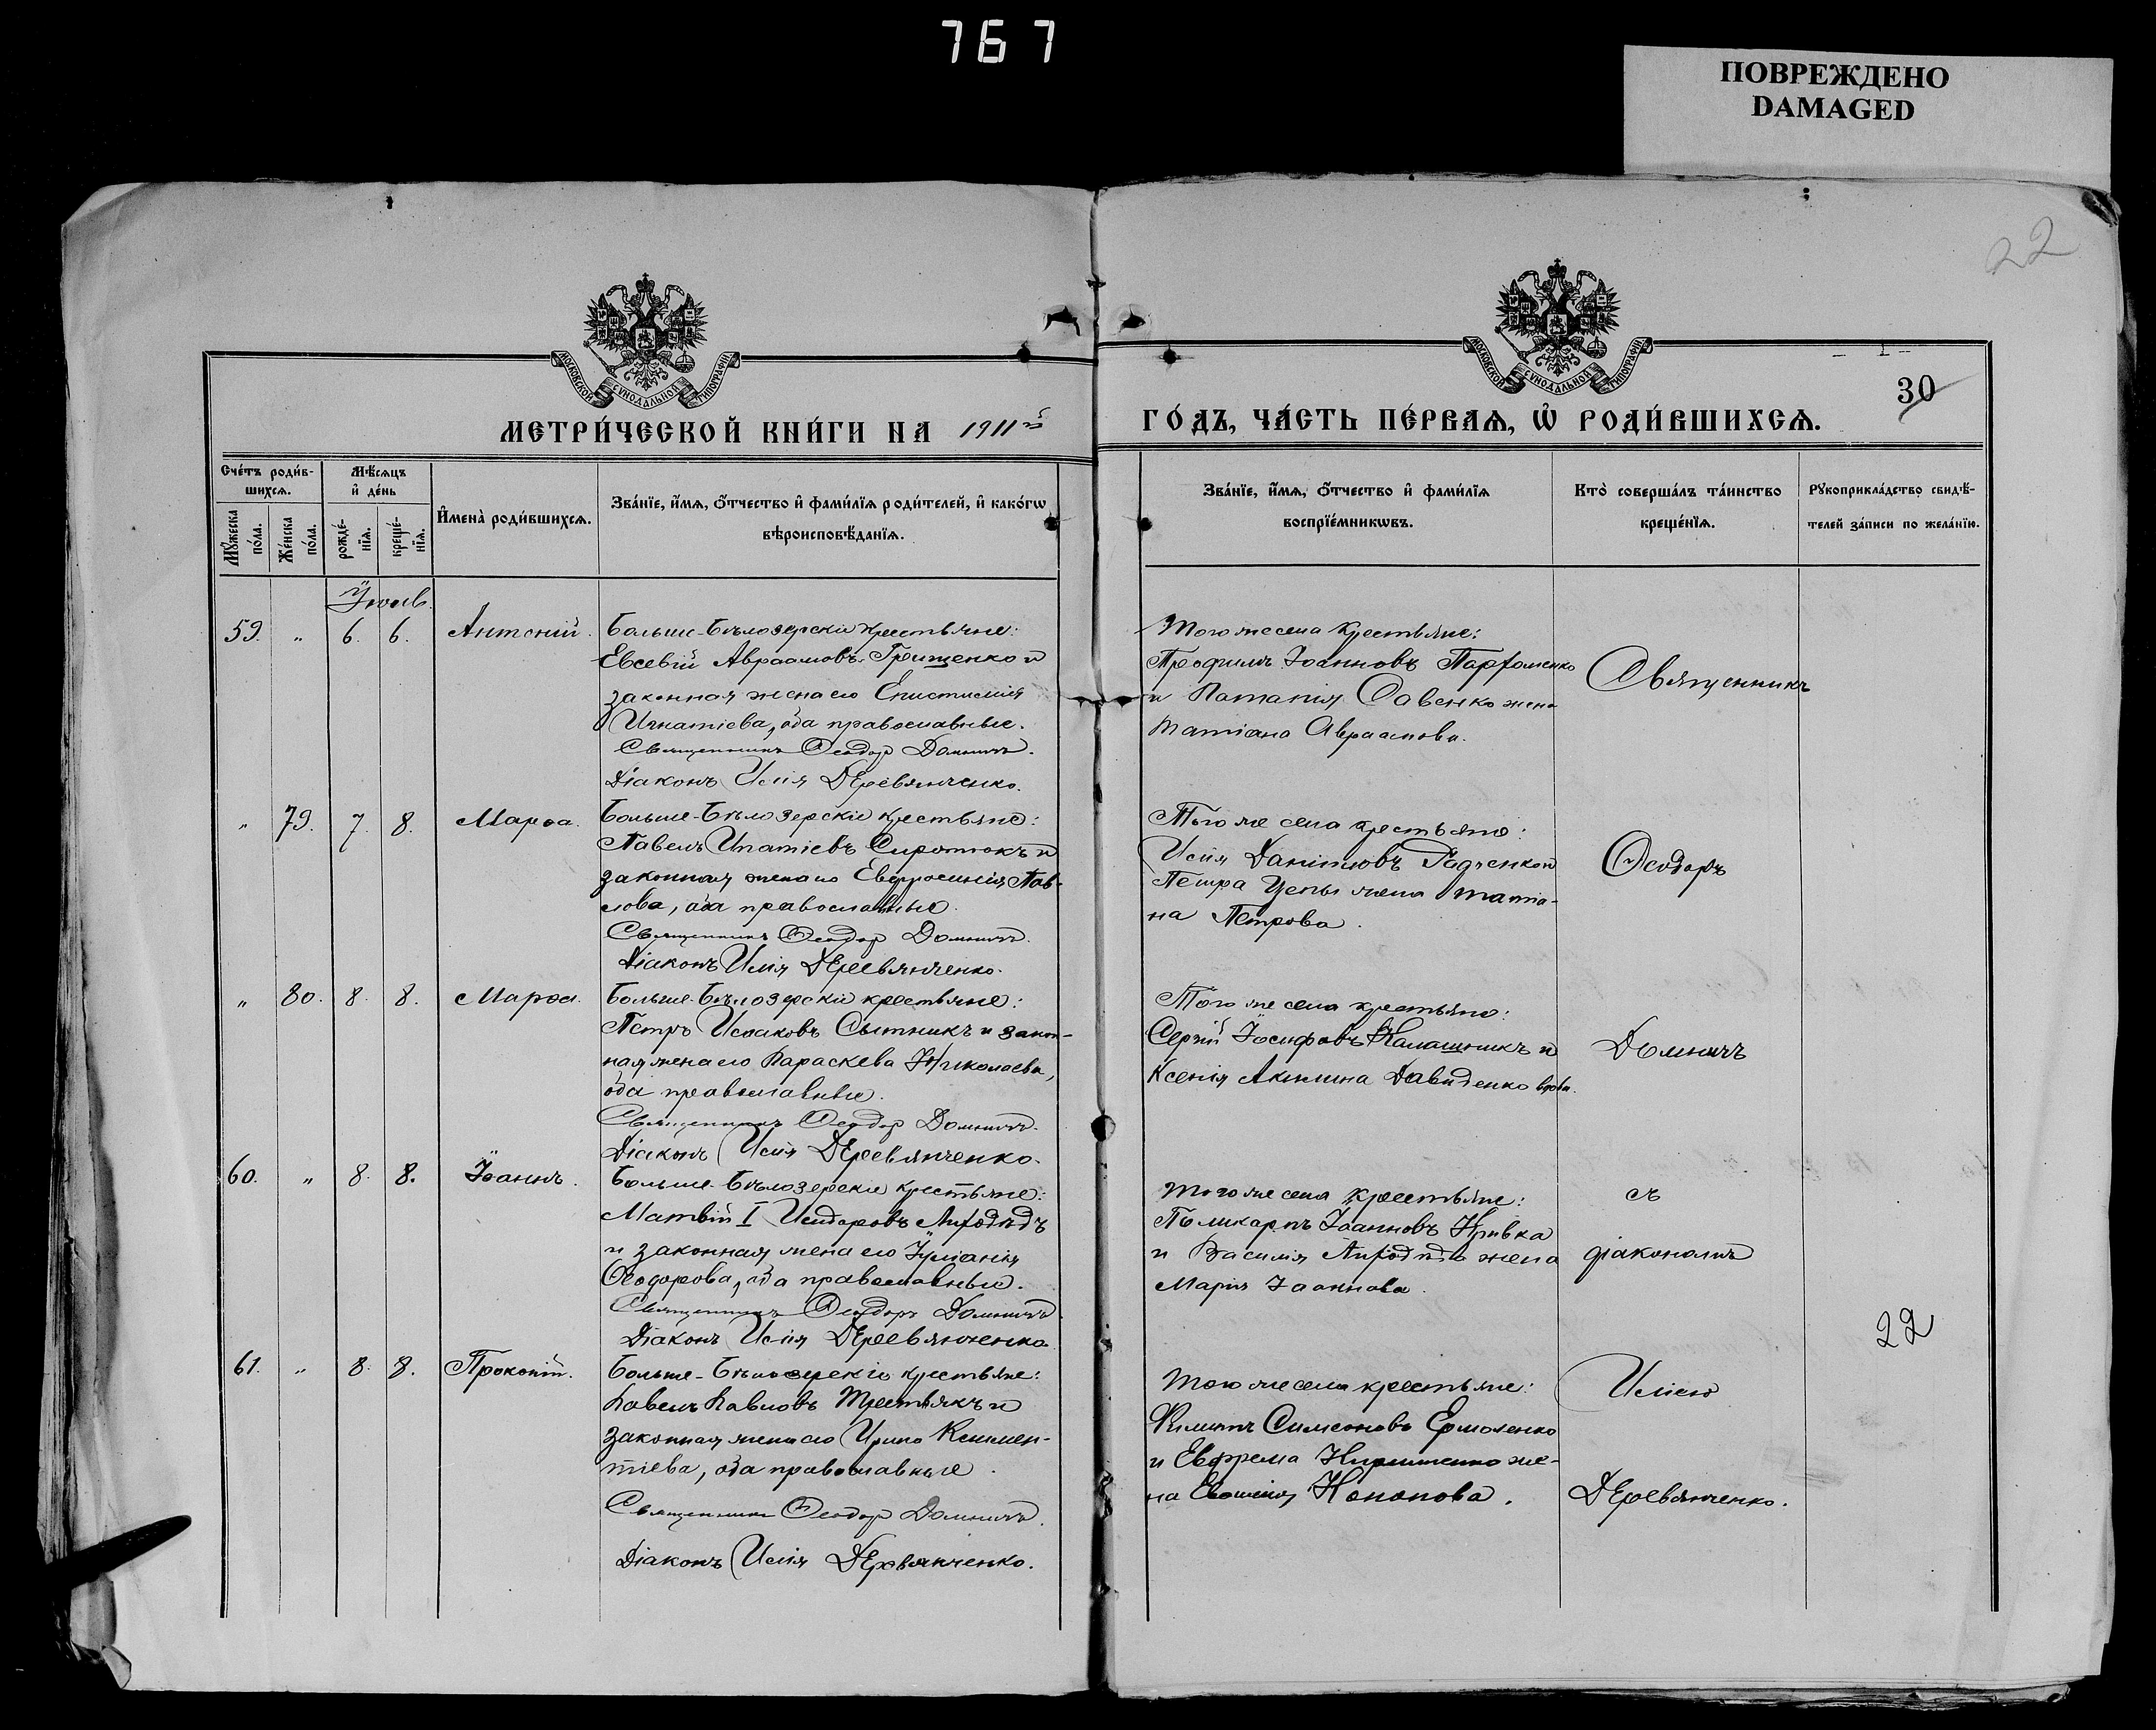 767
ПОВРЕЖДЕНО
DAMAGED
22
МОСКОВСКОЙ СѴНОДАЛЬНОЙ ТИПОГРАФІИ
МОСКОВСКОЙ СѴНОДАЛЬНОЙ ТИПОГРАФІИ
30
МЕТРИ́ЧЕСКОЙ КНИ́ГИ НА 1911й
ГО́ДЪ, ЧА́СТЬ ПЕ́РВАѦ, Ѡ҆ РОДИ́ВШИХСѦ.
Сче́тъ роди́в-
шихсѧ.
Мꙋ́жеска по́ла.
Же́нска по́ла.
Мѣ́сѧцъ
и҆ де́нь
рожде́-
нїѧ.
креще́-
нїѧ.
И҆мена̀ роди́вшихсѧ.
Зва́нїе, и҆́мѧ, ѻ҆́тчество и҆ фами́лїѧ роди́телей, и҆ како́гѡ
вѣроисповѣ́данїѧ.
Зва́нїе, и҆́мѧ, ѻ҆́тчество и҆ фами́лїѧ
воспрїе́мникѡвъ.
Кто̀ соверша́лъ та́инство
креще́нїѧ.
Рꙋкоприкла́дство свидѣ́-
телей за́писи по жела́нїю.
Іюль.
59. " 6. 6. Антоній.
Больше-Бѣлозерскіе крестьяне:
Евсевій Авраамовъ Грищенко и
законная жена его Епистимія
Игнатіева, оба православные.
Священникъ Ѳеодор Домничъ.
Діаконъ Илія Деревянченко.
Того же села крестьяне:
Трофимъ Іоанновъ Парфоменко
и Савенко жена
Татіана Авраамова.
Священникъ
" 79. 7. 8. Марѳа.
Больше-Бѣлозерскіе крестьяне:
Павелъ Ипатіевъ Сиротокъ и
законная жена его Евфросинія Пав-
лова, оба православные.
Священникъ Ѳеодор Домничъ.
Діаконъ Илія Деревянченко.
Того же села крестьяне:
Илія Даніиловъ Радченко и
Петра жена Татіа-
на Петрова.
Ѳеодоръ
" 80. 8. 8. Марѳа.
Больше-Бѣлозерскіе крестьяне:
Петръ Исааковъ Сытникъ и закон-
ная жена его Параскева Николаева,
оба православные.
Священникъ Ѳеодор Домничъ.
Діаконъ Илія Деревянченко.
Того же села крестьяне:
Сергій Іосифовъ Калашникъ и
Ксенія Акимина Давиденко вдова.
Домничъ
60. " 8. 8. Іоаннъ.
Больше-Бѣлозерскіе крестьяне:
Матвій I Исидоровъ Лиходѣдъ
и законная жена его Іуліанія
Ѳеодорова, оба православные.
Священникъ Ѳеодоръ Домничъ
Діаконъ Илія Деревянченко
Того же села крестьяне:
Поликарпъ Іоанновъ Кривка
и Василія Лиходѣда жена
Марія Іоаннова.
съ
діакономъ
22
61. " 8. 8. Прокопій.
Больше-Бѣлозерскіе крестьяне:
Павелъ Павловъ Третьякъ и
законная жена его Ирина Климен-
тіева, оба православные.
Священникъ Ѳеодор Домничъ.
Діаконъ Илія Деревянченко.
Того же села крестьяне:
Филиппъ Симеоновъ Ермоленко
и Ефрема же-
на Кононова.
Иліею
Деревянченко.